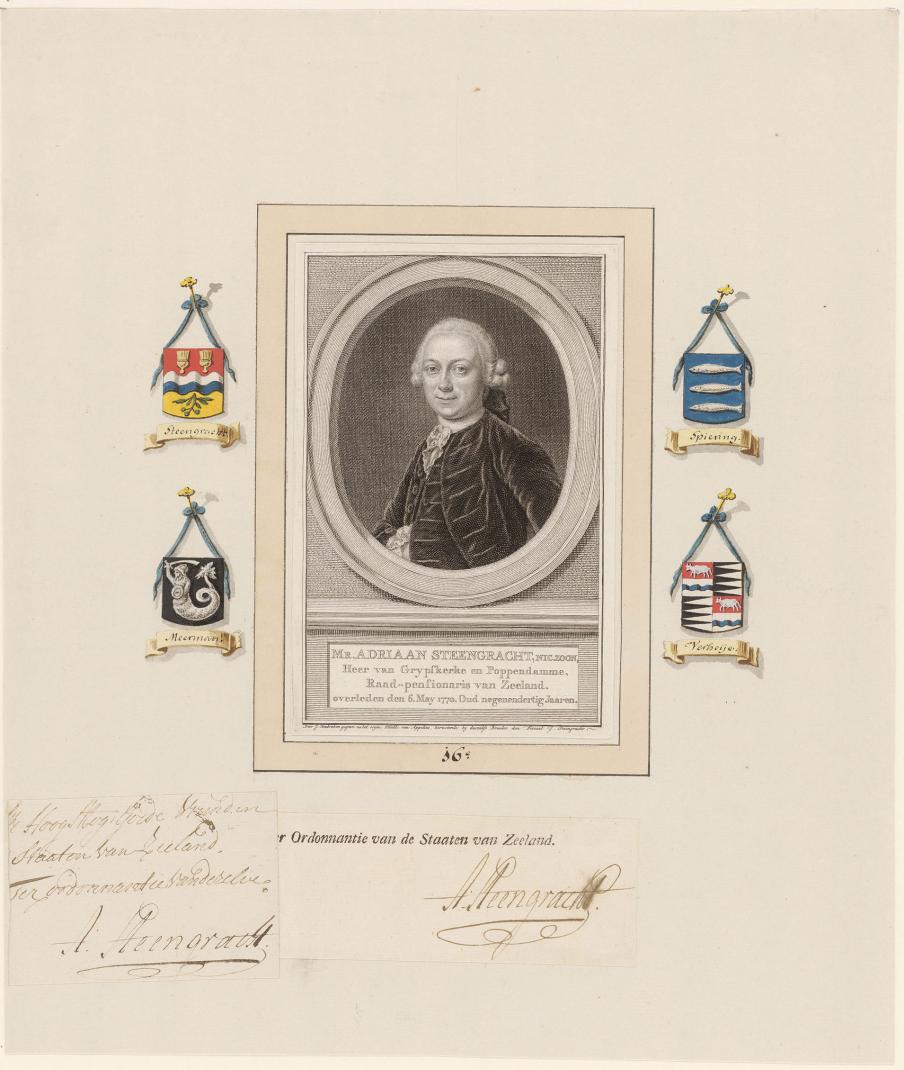 Steengracht.
Spiering.
Meerman.
Verheije.
Mr. ADRIAAN STEENGRACHT, NIC. ZOON,
Heer van Grypskerke en Poppendamme,
Raad-pensionaris van Zeeland.
overleden den 6. May 1770. Oud negenendertig Jaaren.
16e
Hoog Mog:
Staaten van Zeeland.
Ter ordonnantie van dezelve.
A: Steengracht.
er Ordonnantie van de Staaten van Zeeland.
A: Steengracht.